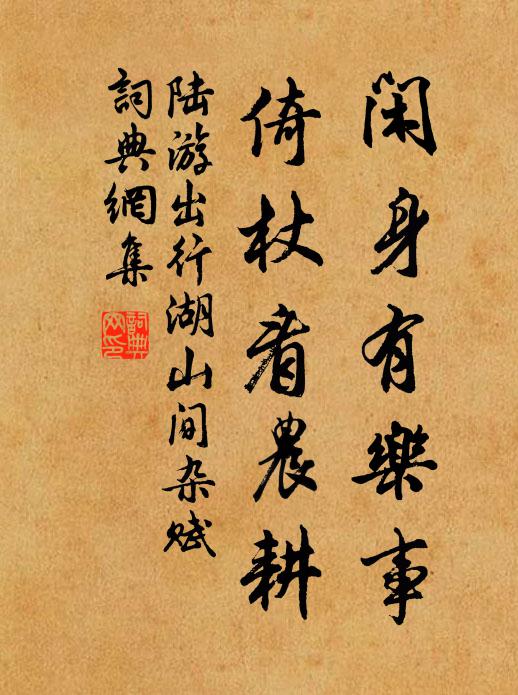 闲身有樂事
倚杖看農耕
陆游出行湖山间杂赋
詞典網集
詞典
网印